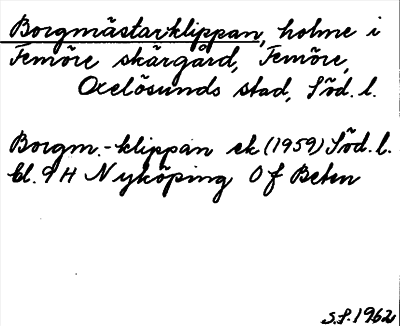 Borgmästarklippan, holme i
Femöre skärgård, Femöre,
Oxelösunds stad, Söd. l.
Borgm.-klippan ek (1959) Söd. l.
bl. 9 H Nyköping O f Beten
S.P. 1962